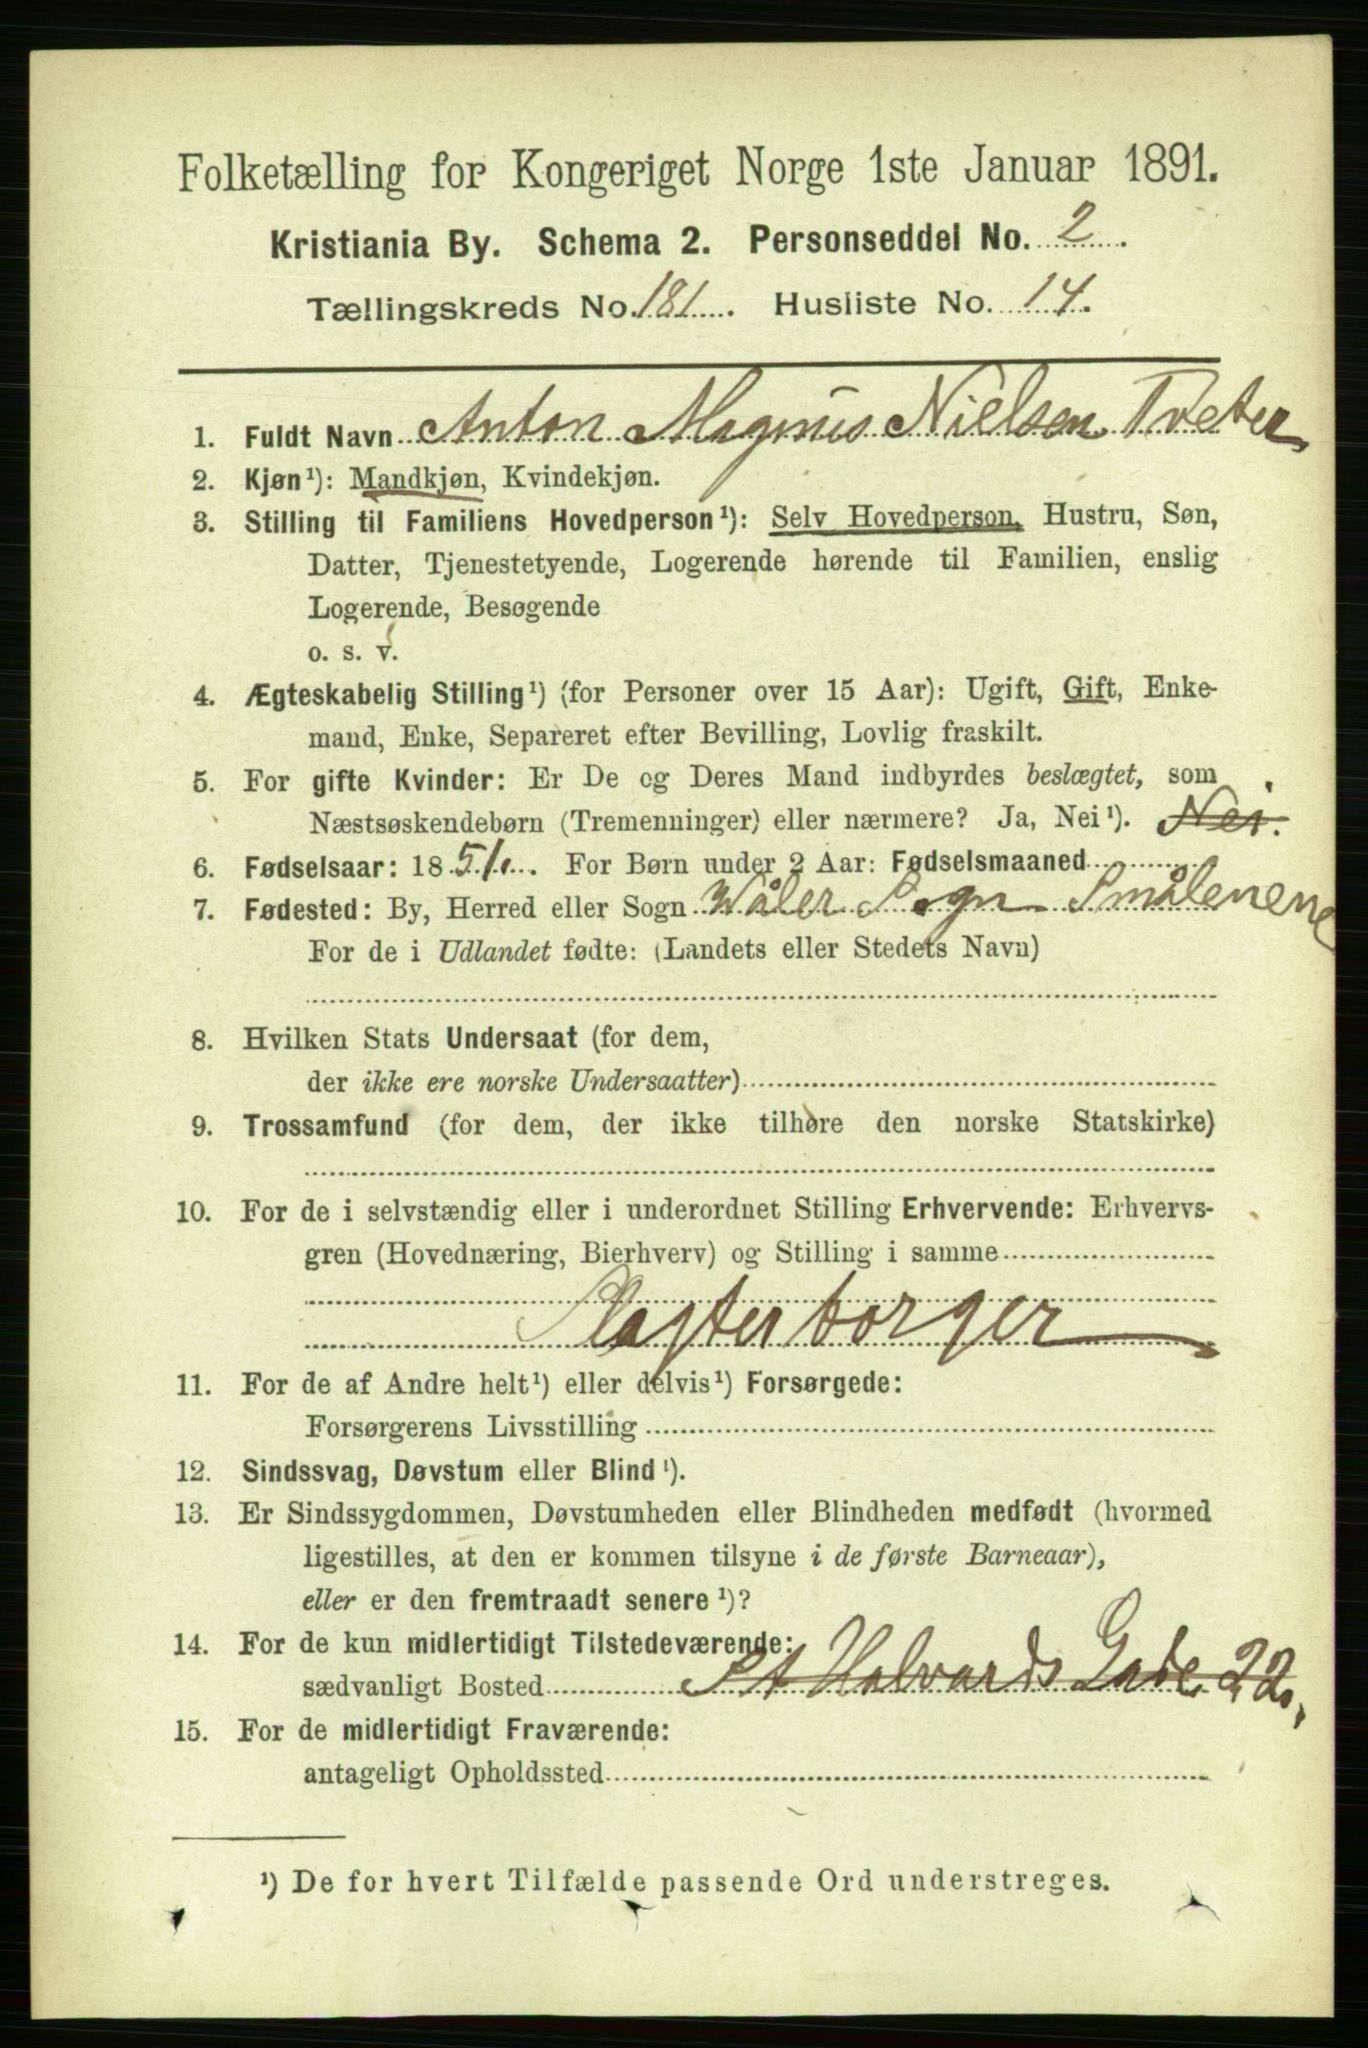 Folketælling for Kongeriget Norge 1ste Januar 1891.
Kristiania By. Schema 2. Personseddel No. 2.
Tællingskreds No. 181. Husliste No. 14.
1. Fuldt Navn Anton Magnus Nielsen Tveter
2. Kjøn¹): Mandkjøn, Kvindekjøn.
3. Stilling til Familiens Hovedperson¹): Selv Hovedperson, Hustru, Søn,
Datter, Tjenestetyende, Logerende hørende til Familien, enslig
Logerende, Besøgende
o. s. v.
4. Ægteskabelig Stilling¹) (for Personer over 15 Aar): Ugift, Gift, Enke-
mand, Enke, Separeret efter Bevilling, Lovlig fraskilt.
5. For gifte Kvinder: Er De og Deres Mand indbyrdes beslægtet, som
Næstsøskendebørn (Tremenninger) eller nærmere? Ja, Nei¹). Nei.
6. Fødselsaar: 1851. For Børn under 2 Aar: Fødselsmaaned
7. Fødested: By, Herred eller Sogn Wåler Sogn Smålenene
For de i Udlandet fødte: (Landets eller Stedets Navn)
8. Hvilken Stats Undersaat (for dem,
der ikke ere norske Undersaatter)
9. Trossamfund (for dem, der ikke tilhøre den norske Statskirke)
10. For de i selvstændig eller i underordnet Stilling Erhvervende: Erhvervs-
gren (Hovednæring, Bierhverv) og Stilling i samme
Slagterborger
11. For de af Andre helt¹) eller delvis¹) Forsørgede:
Forsørgerens Livsstilling
12. Sindssvag, Døvstum eller Blind¹).
13. Er Sindssygdommen, Døvstumheden eller Blindheden medfødt (hvormed
ligestilles, at den er kommen tilsyne i de første Barneaar),
eller er den fremtraadt senere¹)?
14. For de kun midlertidigt Tilstedeværende:
sædvanligt Bosted St Halvards Gade 22.
15. For de midlertidigt Fraværende:
antageligt Opholdssted
¹) De for hvert Tilfælde passende Ord understreges.